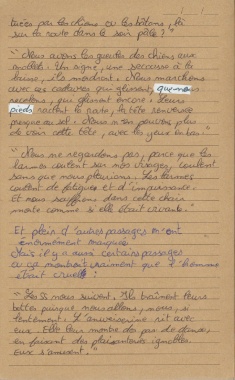 tuées par les chiens ou les bâtons, là
sur la route dans le soir pâle ? "
" Nous avons les gueules des chiens aux
mollets. Un signe, une secousse à la
laisse, ils mordront. Nous marchons
avec ces cadavres qui glissent, que nous
récupérons, qui glissent encore, leurs
pieds raclent la route, la tête renversée
presque au sol. Nous n'en pouvons plus
de voir cette tête, avec les yeux en bas "
" Nous ne regardons pas, parce que les
larmes coulent sur nos visages, coulent
sans que nous pleurions. Les larmes
coulent de fatigue et d'impuissance.
Et nous souffrons dans cette chair
morte comme si elle était vivante. "
Et plein d'autres passages m'ont
énormément marquée.
Mais il y a aussi certains passages
où ça montrait vraiment que l'homme
était cruel :
" Les SS nous suivent. Ils traînent leurs
bottes puisque nous allons, nous, si
lentement. L'anweiserine rit avec
eux. Elle leur montre des pas de danse,
en faisant des plaisanteries ignobles
Eux s'amusent. "